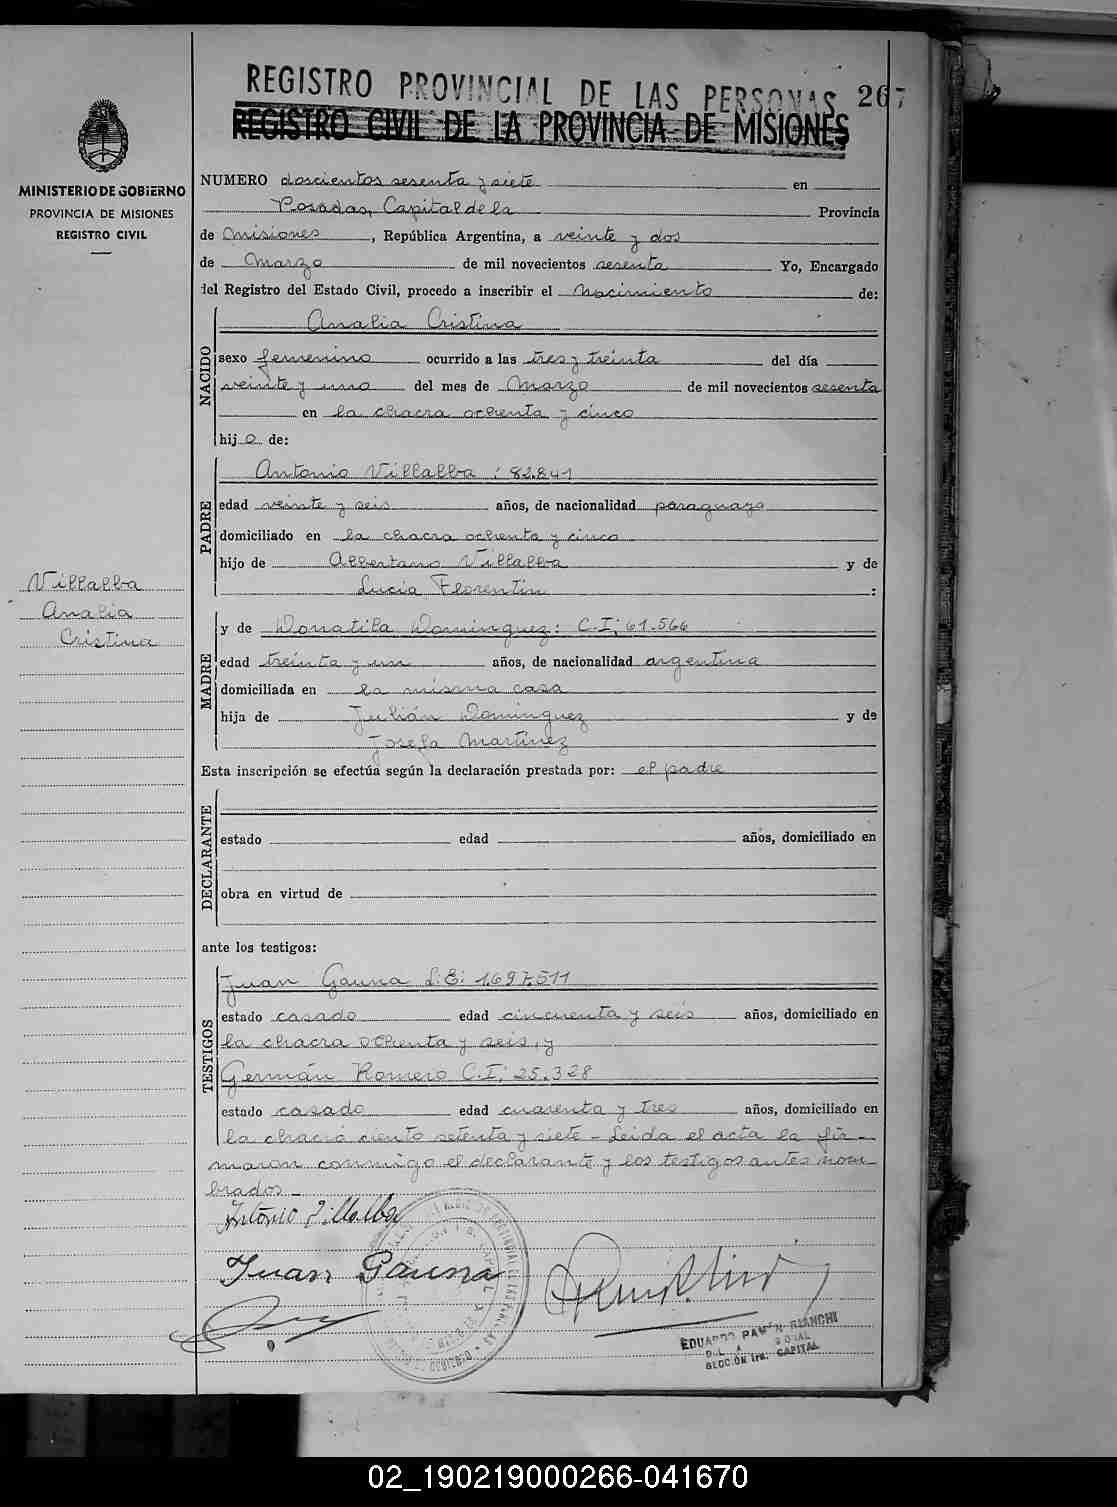 REGISTRO PROVINCIAL DE LAS PERSONAS 267
REGISTRO CIVIL DE LA PROVINCIA DE MISIONES
MINISTERIO DE GOBIERNO
PROVINCIA DE MISIONES
REGISTRO CIVIL
NUMERO doscientos sesenta y siete en
Posadas, Capital de la Provincia
de Misiones, República Argentina, a veinte y dos
de Marzo de mil novecientos sesenta Yo, Encargado
del Registro del Estado Civil, procedo a inscribir el nacimiento de:
NACIDO
Analia Cristina
sexo femenino ocurrido a las tres y treinta del día
veinte y uno del mes de Marzo de mil novecientos sesenta
en la chacra ochenta y cinco
hij o de:
PADRE
Antonio Villalba : 82.841
edad veinte y seis años, de nacionalidad paraguayo
domiciliado en la chacra ochenta y cinco
hijo de Albertano Villalba y de
Lucia Florentin :
Villalba
Analia
Cristina
MADRE
y de Donatila Dominguez: C.I; 61.566
edad treinta y un años, de nacionalidad argentina
domiciliada en la misma casa
hija de Julián Dominguez y de
Josefa Martinez
Esta inscripción se efectúa según la declaración prestada por: el padre
DECLARANTE
estado edad años, domiciliado en
obra en virtud de
ante los testigos:
TESTIGOS
Juan Gauna L:E: 1.697.511
estado casado edad cincuenta y seis años, domiciliado en
la chacra ochenta y seis, y
Germán Romero C.I; 25.328
estado casado edad cuarenta y tres años, domiciliado en
la chacra ciento setenta y siete - Leida el acta la fir-
maron conmigo el declarante y los testigos antes nom-
brados -
Antonio Villalba
Juan Gauna
EDUARDO RAMÓN BIANCHI
SECCIÓN 1ra. CAPITAL
02_190219000266-041670